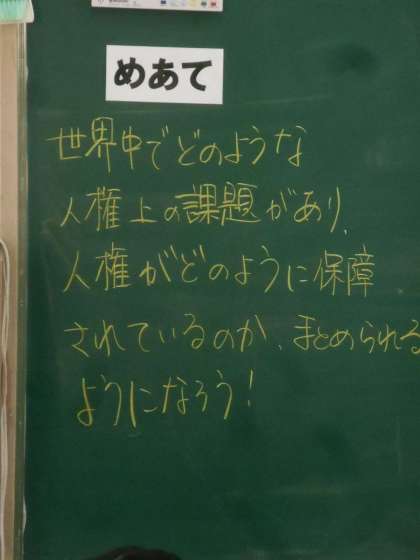 めあて
世界中でどのような
人権上の課題があり、
人権がどのように保障
されているのか、まとめられる
ようになろう!